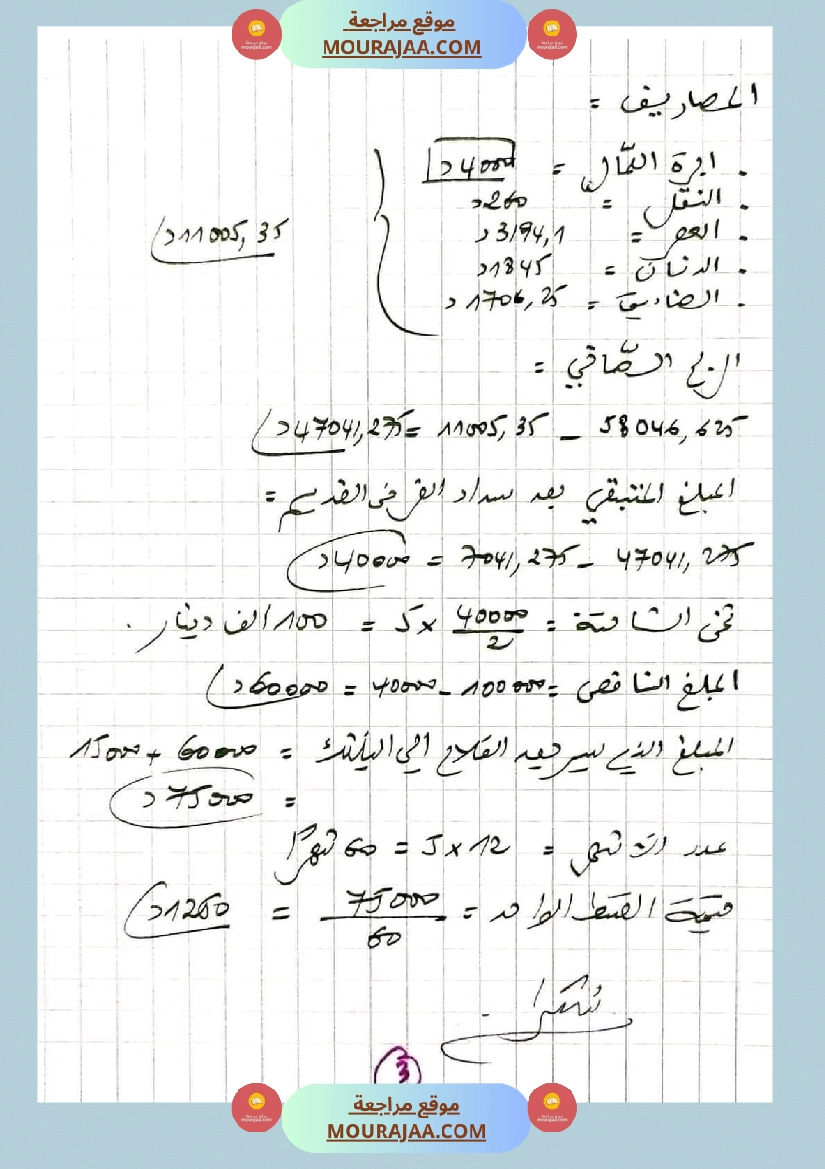 موقع مراجعة
MOURAJAA.COM
المصاريف =
. اجرة العمّال = 4000د
. النقل = 260د
. العصر = 3194,1د
. الدنان = 1845د
. الصناديق = 1706,25د
11005,35د
الربح الصّافي =
58046,625 – 11005,35 = 47041,275د
المبلغ المتبقي بعد سداد القرض القديم =
47041,275 – 7041,275 = 40000د
ثمن الشاحنة = 40000/2 × 5 = 100 الف دينار.
المبلغ الناقص = 100000 – 40000 = 60000د
المبلغ الذي سيرجعه الفلاح الي البنك = 60000 + 15000
= 75000د
عدد الأشهر = 12 × 5 = 60 شهرًا
قيمة القسط الواحد = 75000/60 = 1250د
شكرا
3
موقع مراجعة
MOURAJAA.COM